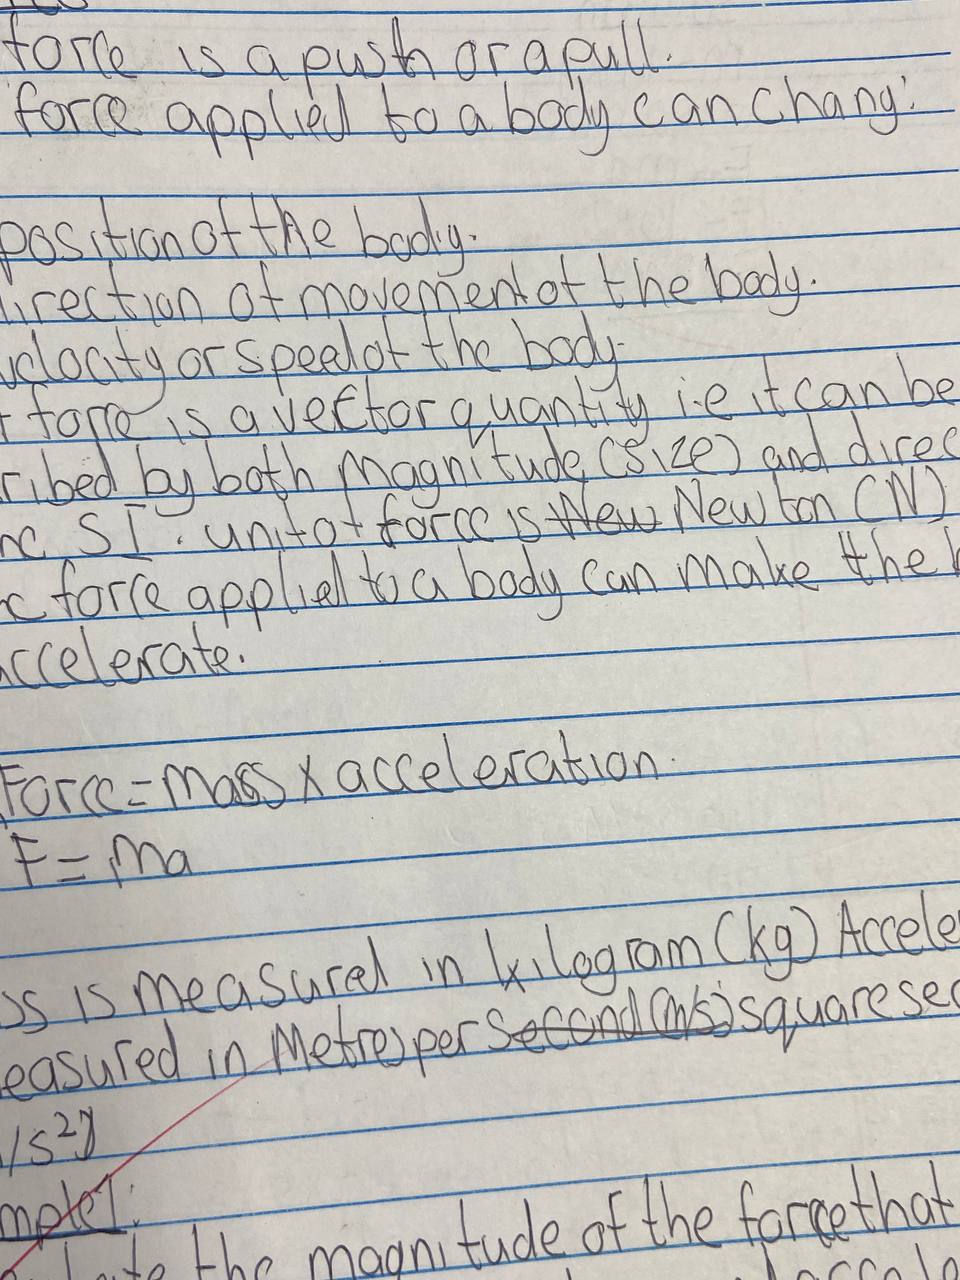 force is a push or a pull.
force applied to a body can chang:
position of the body.
irection of movement of the body.
velocity or speed of the body.
force is a vector quantity i.e it can be
ribed by both Magnitude (size) and direc
S.I. unit of force is New Newton (N)
force applied to a body can make the b
ccelerate.
Force = mass x acceleration.
F = Ma
ss is measured in kilogram (kg) Accele
easured in Metre per Second (m/s) square sec
/s²)
mple 1:
the magnitude of the force that